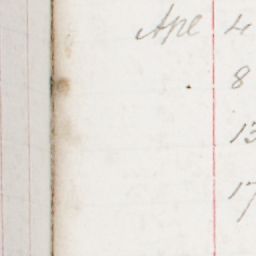 Ape 4
8
13
17